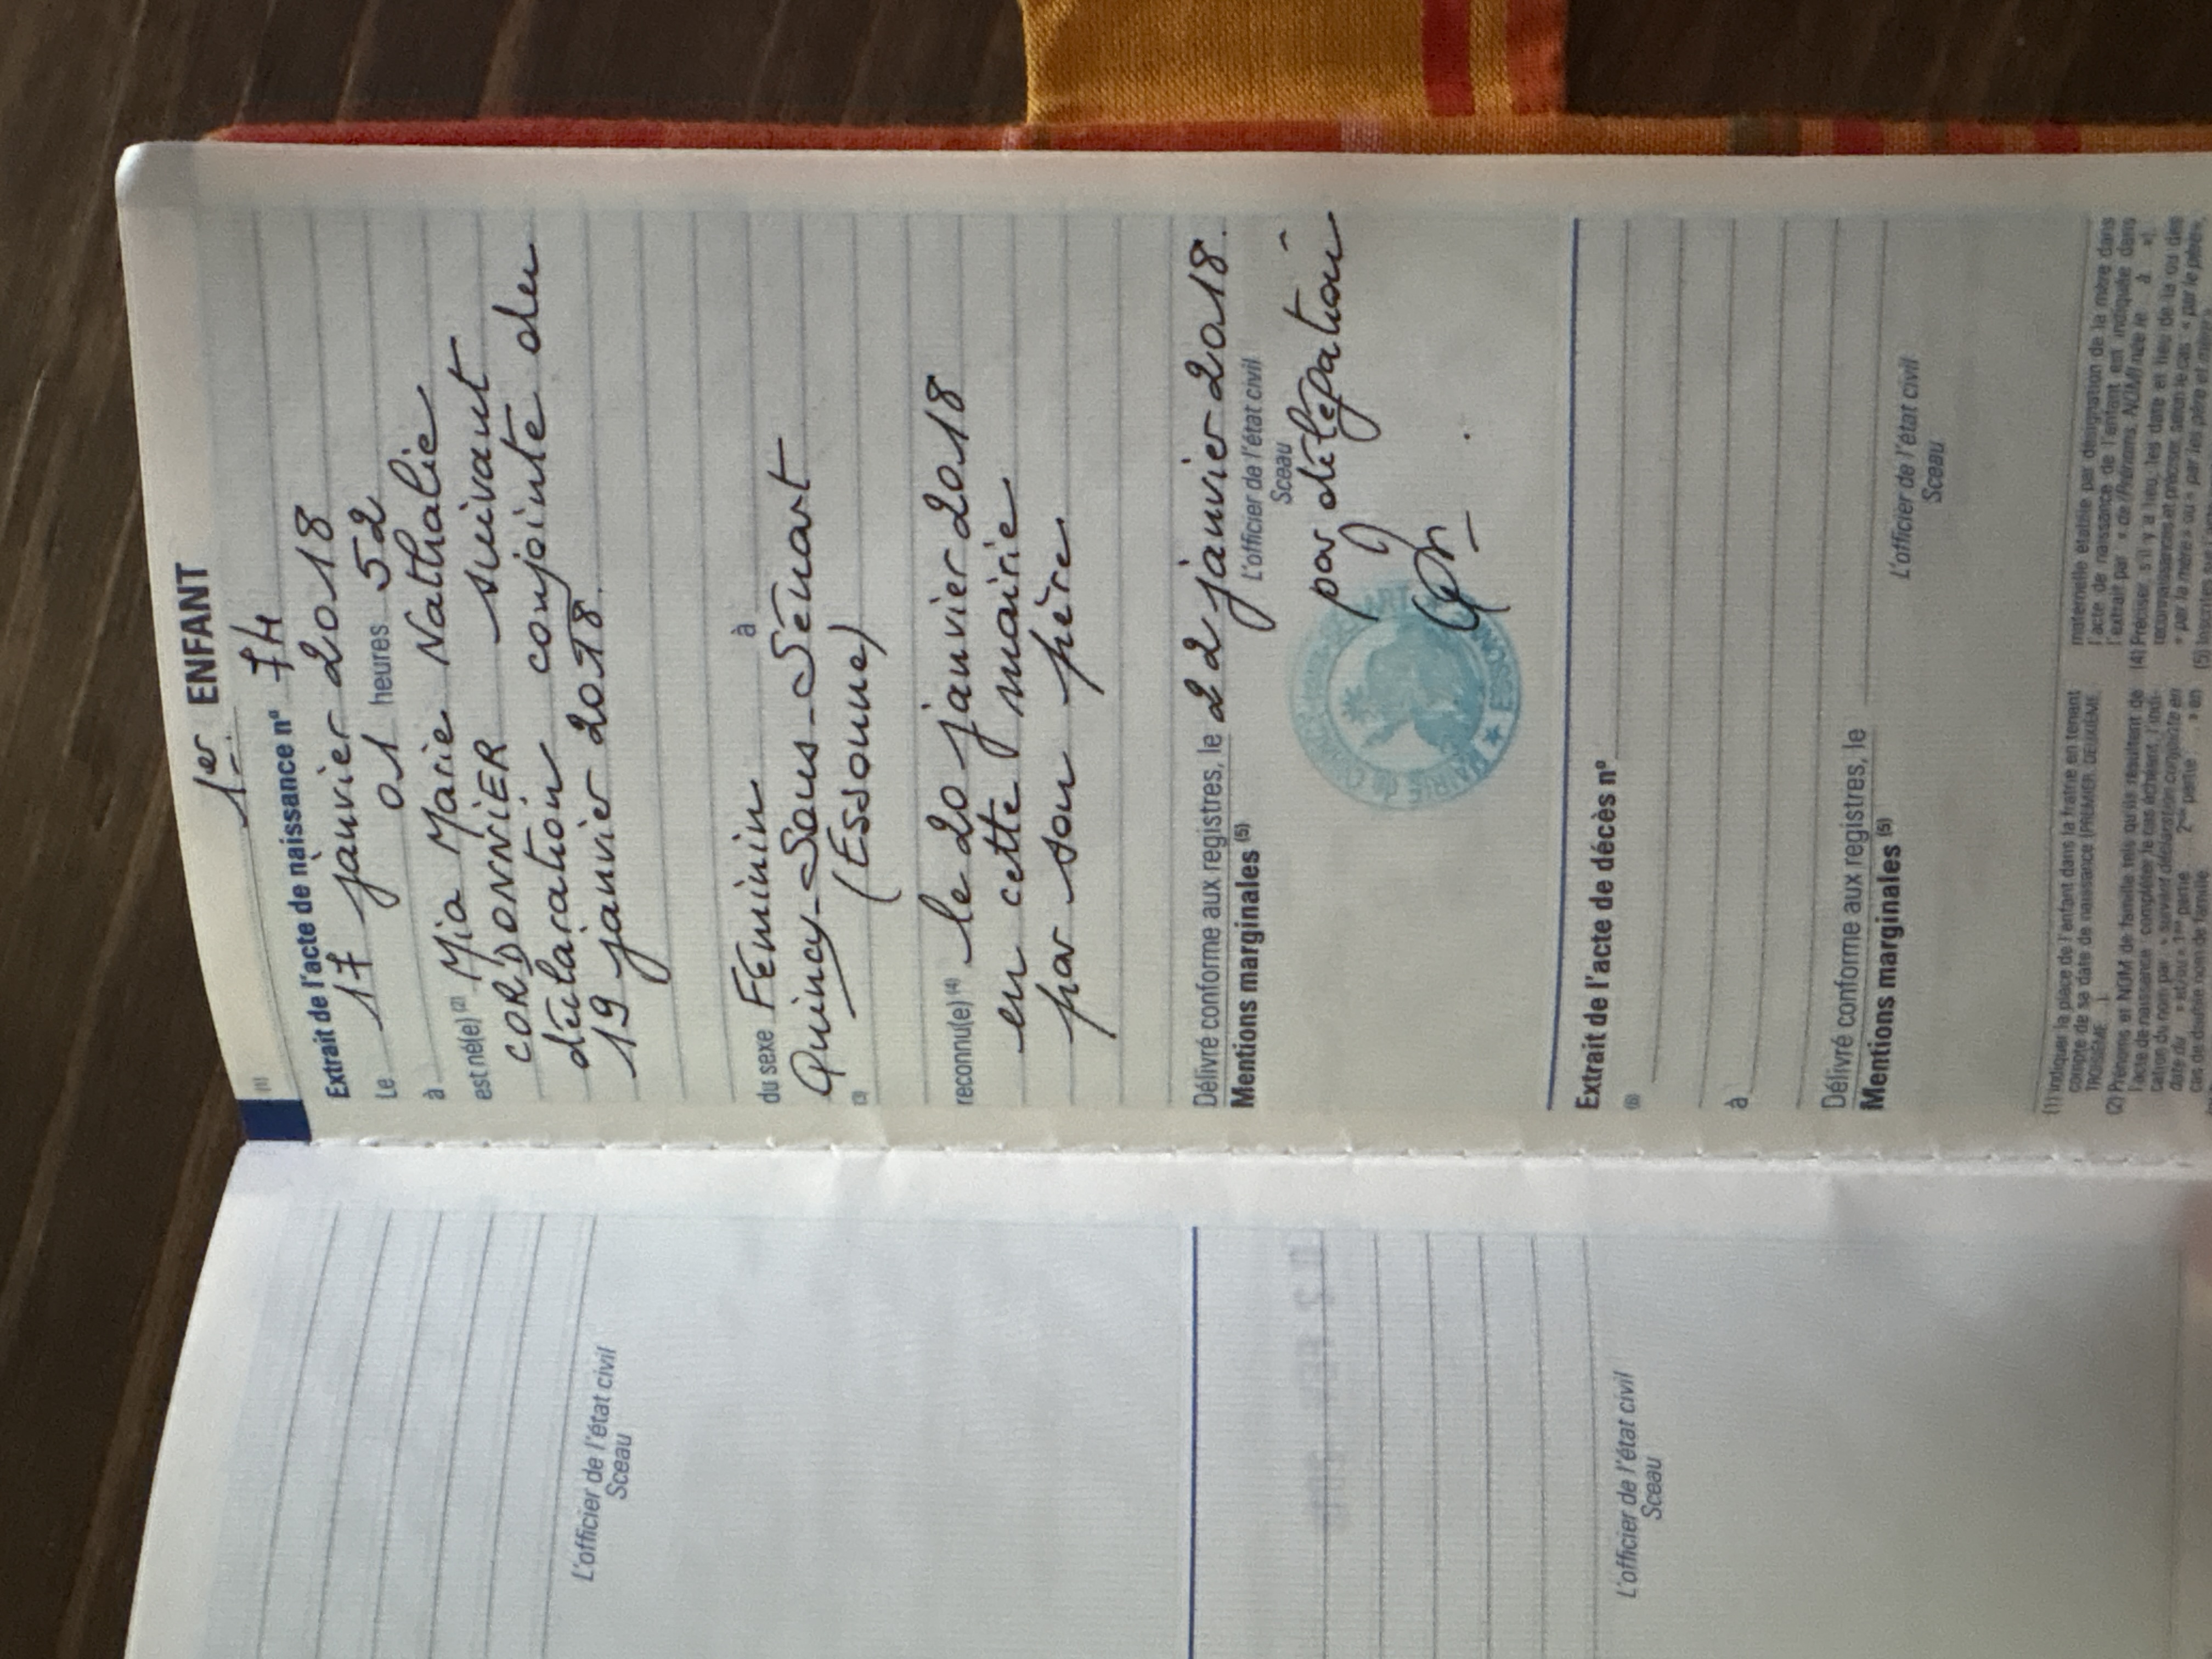 1er ENFANT
(1)
Extrait de l'acte de naissance nº 74
Le 17 janvier 2018
à 01 heures 52
est né(e) (2) Mia Marie Nathalie
CORDONNIER suivant
déclaration conjointe du
19 janvier 2018
du sexe Féminin à
Quincy-Sous-Sénart
(3) (Essonne)
reconnu(e) (4) le 20 janvier 2018
en cette mairie
par son père
Délivré conforme aux registres, le 22 janvier 2018.
Mentions marginales (5) L'officier de l'état civil
Sceau
par délégation
MAIRIE de ESSONNE
Extrait de l'acte de décès nº
(6)
à
Délivré conforme aux registres, le
Mentions marginales (5) L'officier de l'état civil
Sceau
(1) Indiquer la place de l'enfant dans la fratrie en tenant
compte de sa date de naissance (PREMIER, DEUXIÈME,
TROISIÈME ...).
(2) Prénoms et NOM de famille tels qu'ils résultent de
l'acte de naissance : compléter, le cas échéant, l'indi-
cation du nom par : « suivant déclaration conjointe en
date du » et/ou « 1ère partie : 2ème partie : » en
cas de double nom de famille
maternelle établie par désignation de la mère dans
l'acte de naissance de l'enfant est indiquée dans
l'extrait par : « de (Prénoms, NOM) née le... à... »).
(4) Préciser, s'il y a lieu, les date et lieu de la ou des
reconnaissances et préciser, selon le cas : « par le père »,
« par la mère » ou « par les père et mère »
(5)
L'officier de l'état civil
Sceau
L'officier de l'état civil
Sceau